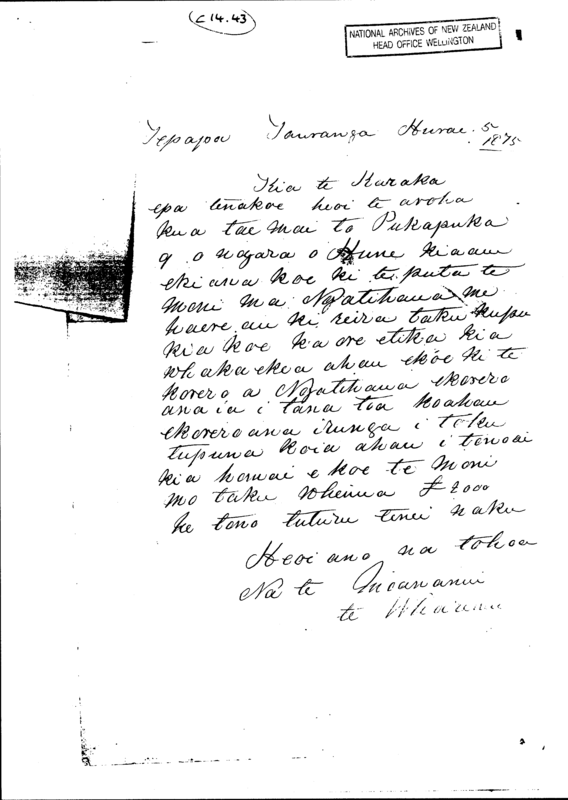 C 14.43
NATIONAL ARCHIVES OF NEW ZEALAND
HEAD OFFICE WELLINGTON
Tepapoa Tauranga Hurae 5
1875
Kia te Karaka
epa tenakoe heoi te aroha
kua tae mai to Pukapuka
9 o nagara o Hune kiaau
ekiana koe ki te puta te
moni ma Ngatihaua me
haere au ki reira taku kupu
kia koe kaore etika kia
whakaekea ahau ekoe ki te
korero a Ngatihaua ekorero
ana ia i tana toa koahau
ekoreroana irunga i toku
tupuna koia ahau i tonoai
kia homai e koe te moni
mo taku whenua £2000
he tono tuturu tenei naku
Heoi ano na tohoa
Na te Moananui
te